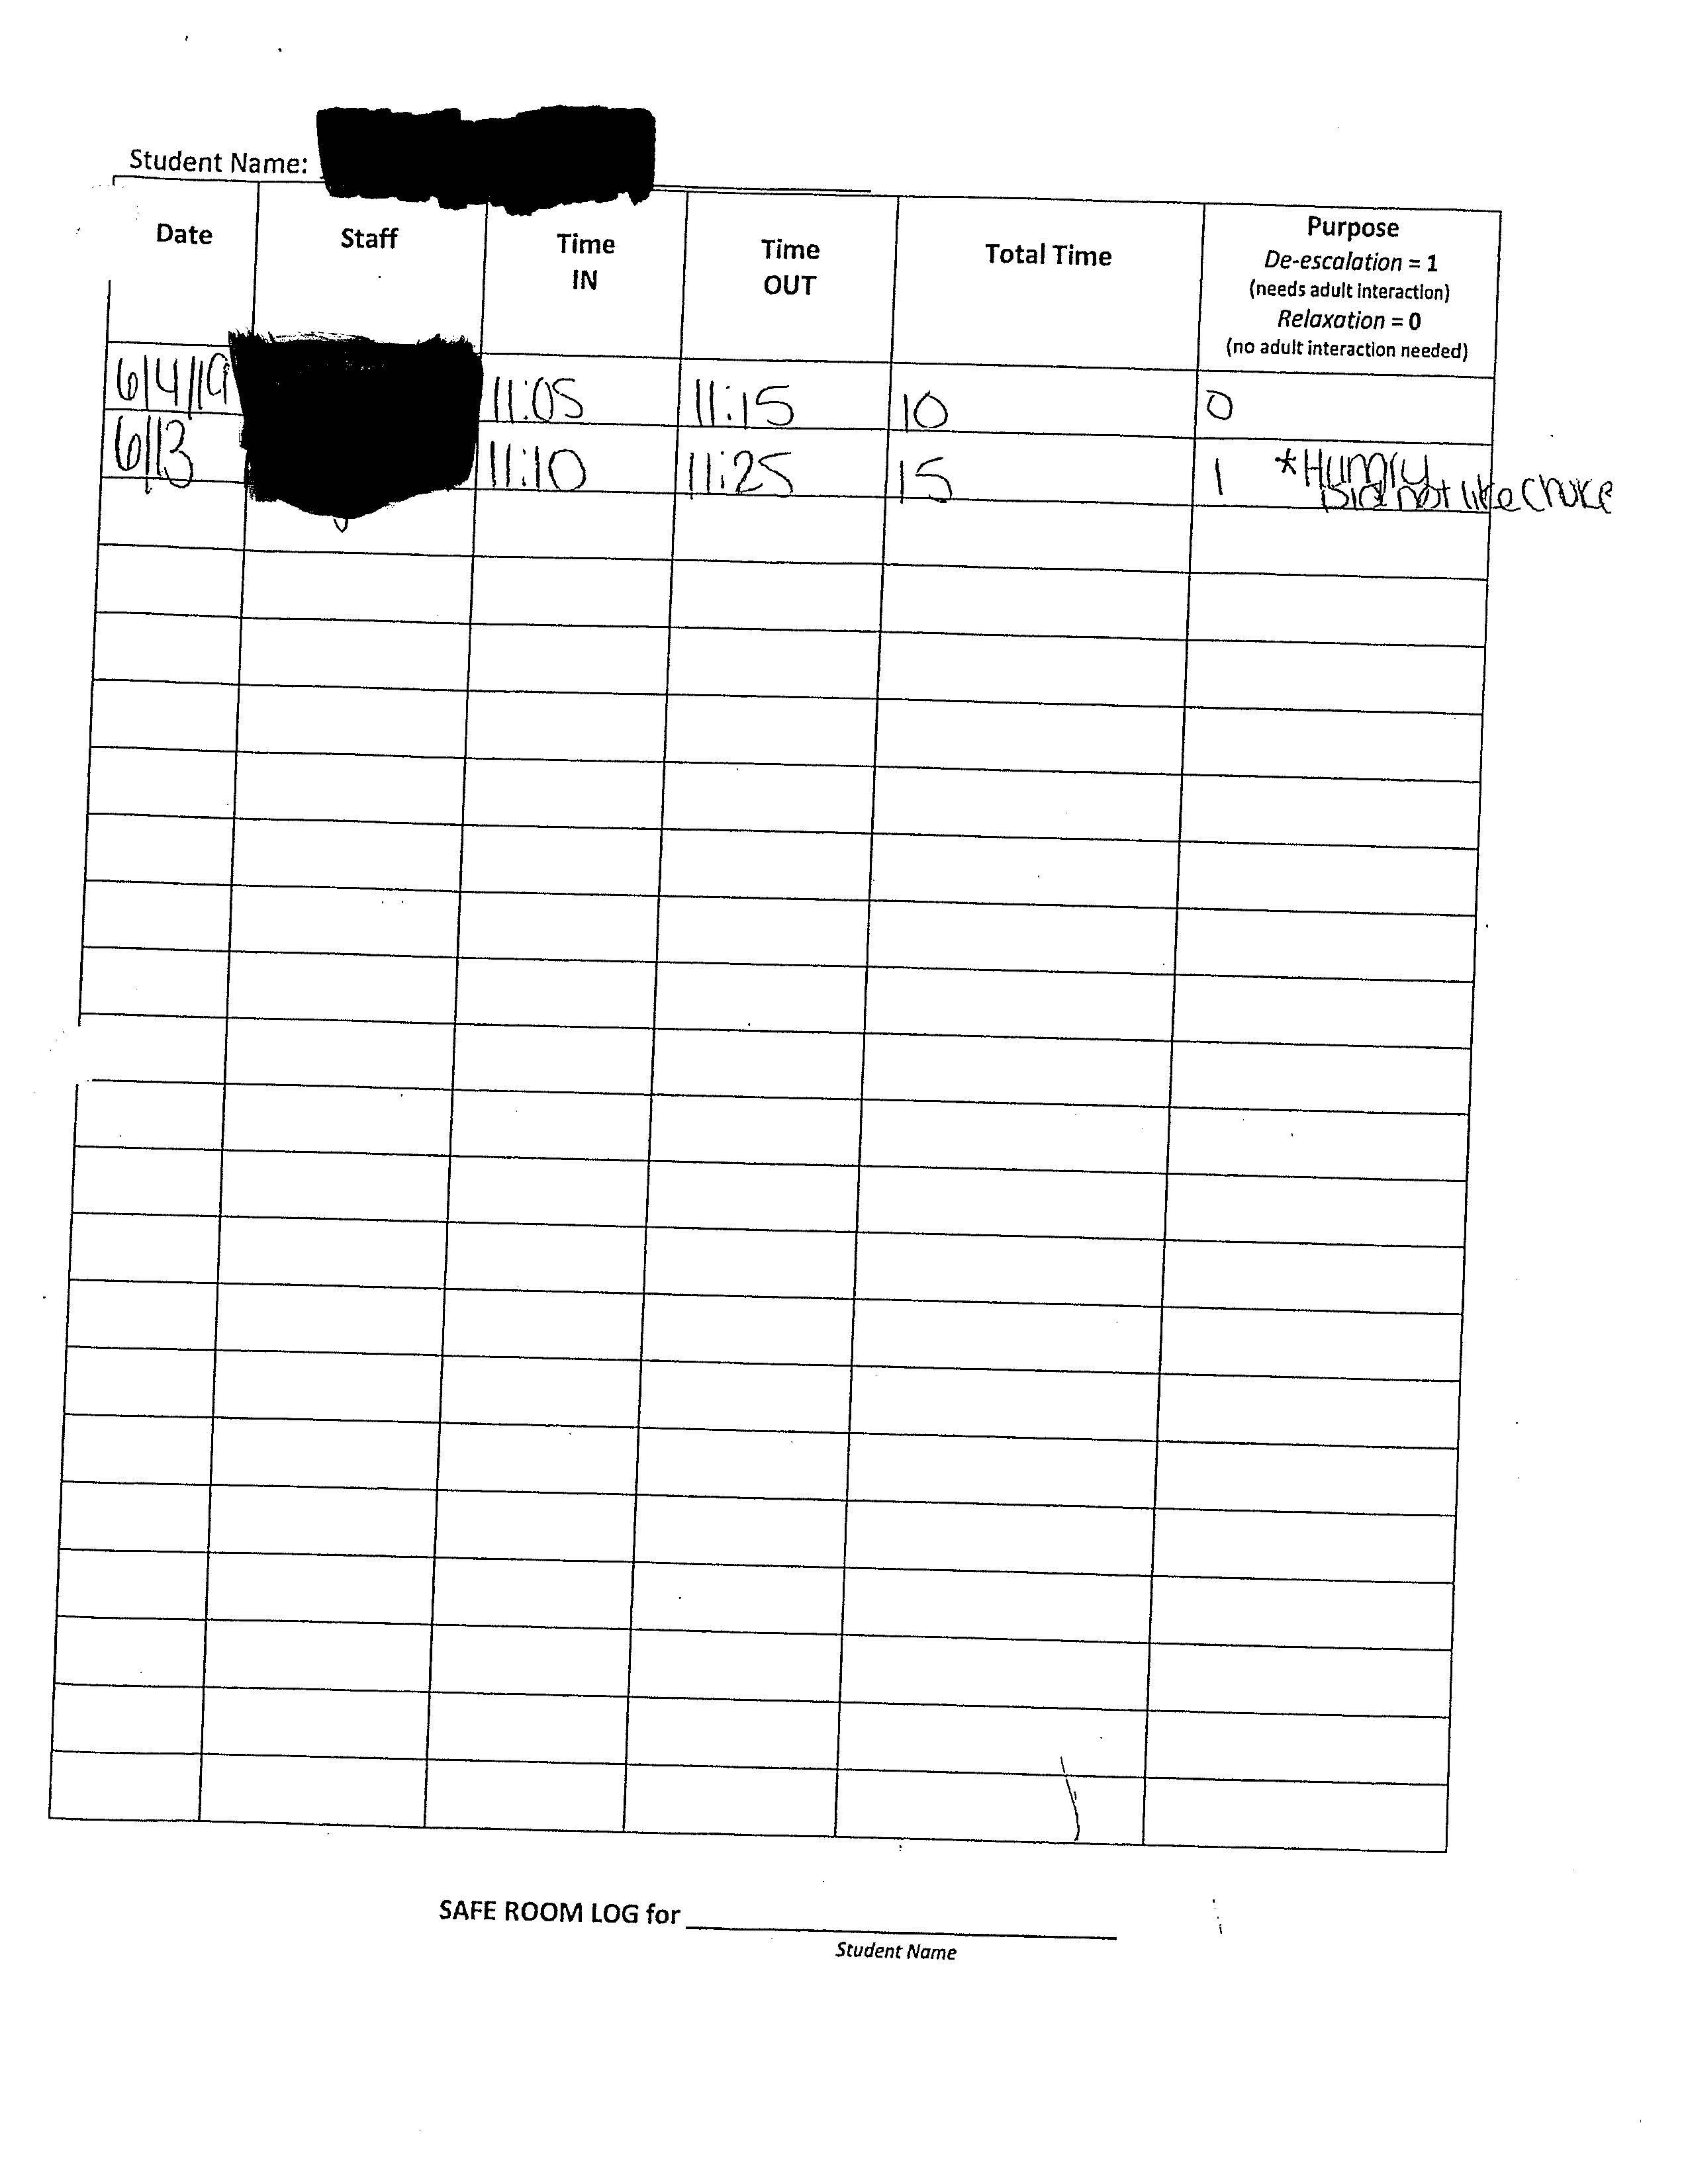 Student Name:
Date Staff Time IN Time OUT Total Time Purpose
De-escalation = 1
(needs adult interaction)
Relaxation = 0
(no adult interaction needed)
6/4/19 11:05 11:15 10 0
6/13 11:10 11:25 15 1 *Hungry
Did not like choice
SAFE ROOM LOG for
Student Name